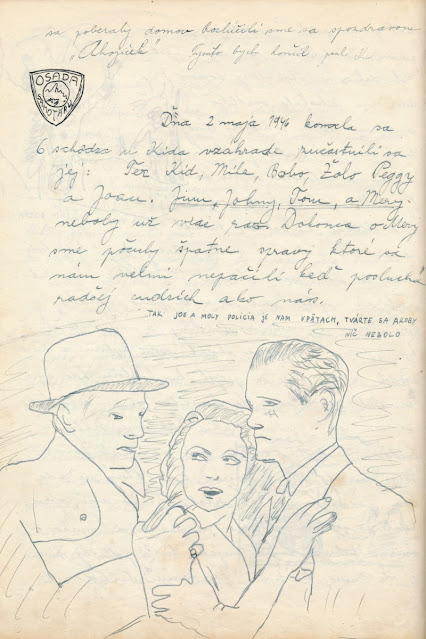 sa poberaly domov Rozlúčili sme sa spozdravom
„Ahojček“ Týmto bych končil
OSADA
Dňa 2 maja 1946 konala sa
6 schôdza u Kida vzahrade zučastnili sa
jej: Tex Kid, Mile, Bobo, Žolo Peggy
a Joan. Jim, Johny, Tom, a Mery
neboly už viac ras. Dokonca o Mery
sme počuly špatne zpravy ktoré sa
nám velmi nepačili keď poslucha
radšej cudzich ako nás.
TAK JOE A MOLY POLICIA JE NAM VPÄTACH, TVÁRTE SA AKOBY
NIČ NEBOLO